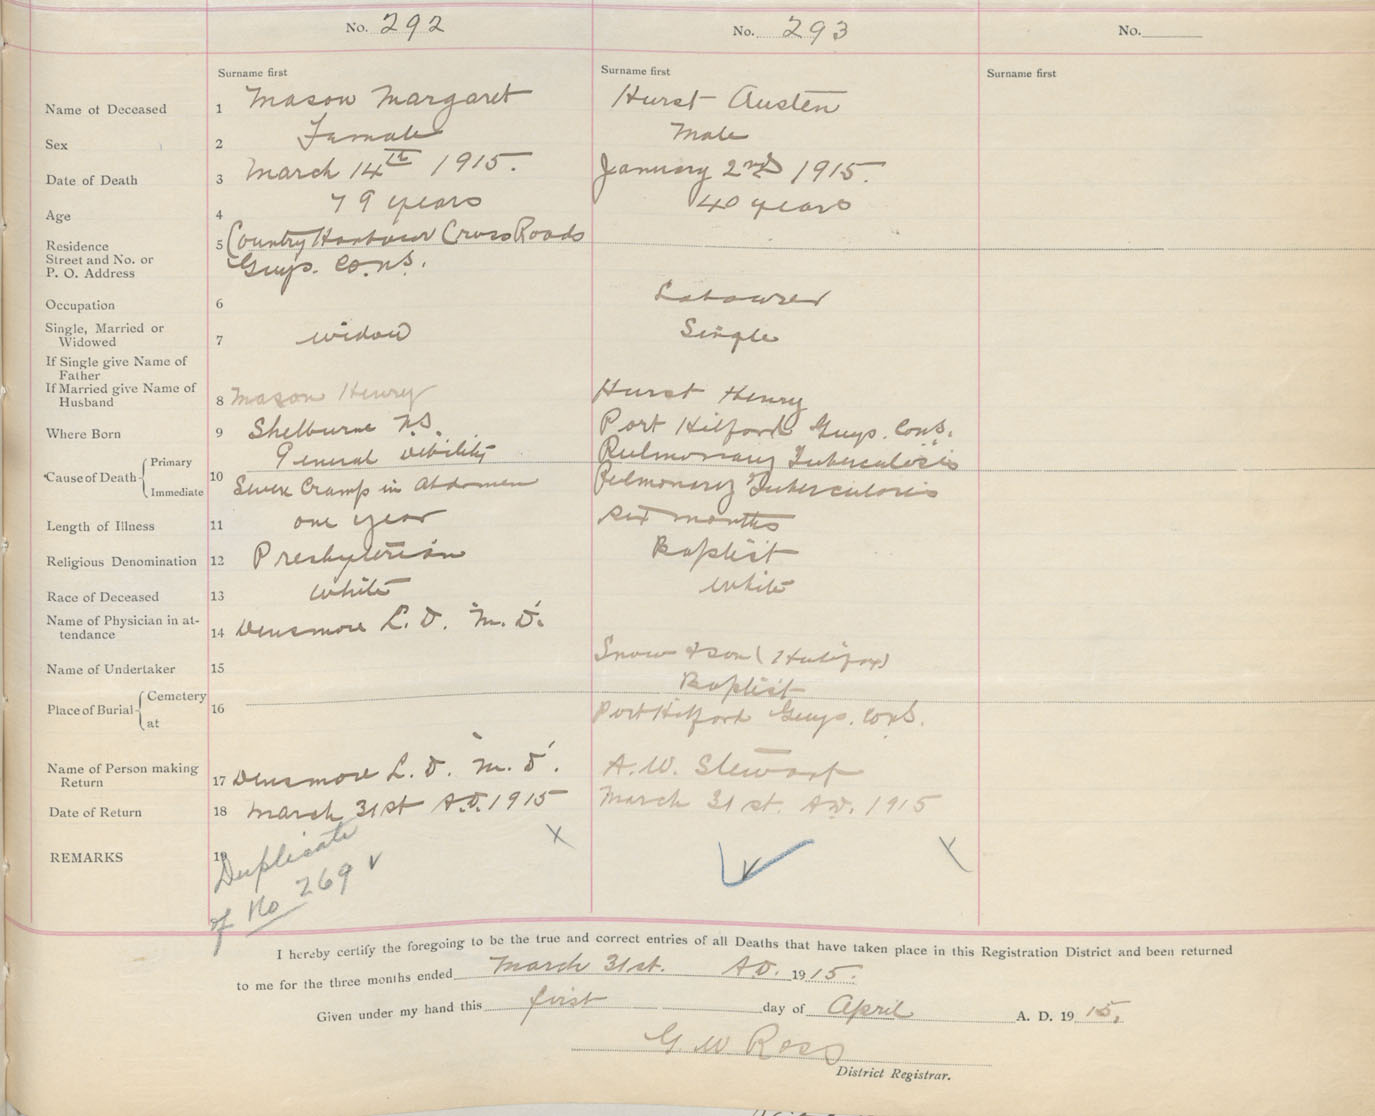 No. 292
No. 293
No.
Surname first
Surname first
Surname first
Name of Deceased 1 Mason Margaret Hurst Austen
Sex 2 Famale Male
Date of Death 3 March 14th 1915. January 2nd 1915.
Age 4 79 years 40 years
Residence 5 Country Harbour Cross Roads
Street and No. or
P. O. Address Guys. Co. N.S.
Occupation 6 Labourer
Single, Married or
Widowed 7 widow Single
If Single give Name of
Father
If Married give Name of
Husband 8 Mason Henry Hurst Henry
Where Born 9 Shelburne N.S. Port Hilford Guys. Co. N.S.
Cause of Death Primary General debility Pulmonary Tuberculosis
10
Immediate Severe Cramp in Abdomen Pulmonary Tuberculosis
Length of Illness 11 one year six months
Religious Denomination 12 Presbyterian Baptist
Race of Deceased 13 White White
Name of Physician in at-
tendance 14 Densmore L. D. "M. D."
Name of Undertaker 15 Snow & Son (Halifax)
Place of Burial Cemetery 16 Baptist
at Port Hilford Guys. Co. N.S.
Name of Person making
Return 17 Densmore L. D. "M. D". A. W. Stewart
Date of Return 18 March 31st A.D. 1915 March 31st. A.D. 1915
REMARKS 19 Duplicate
of No 269
I hereby certify the foregoing to be the true and correct entries of all Deaths that have taken place in this Registration District and been returned
to me for the three months ended March 31st. A.D. 1915.
Given under my hand this first day of April A. D. 1915.
G W Ross
District Registrar.